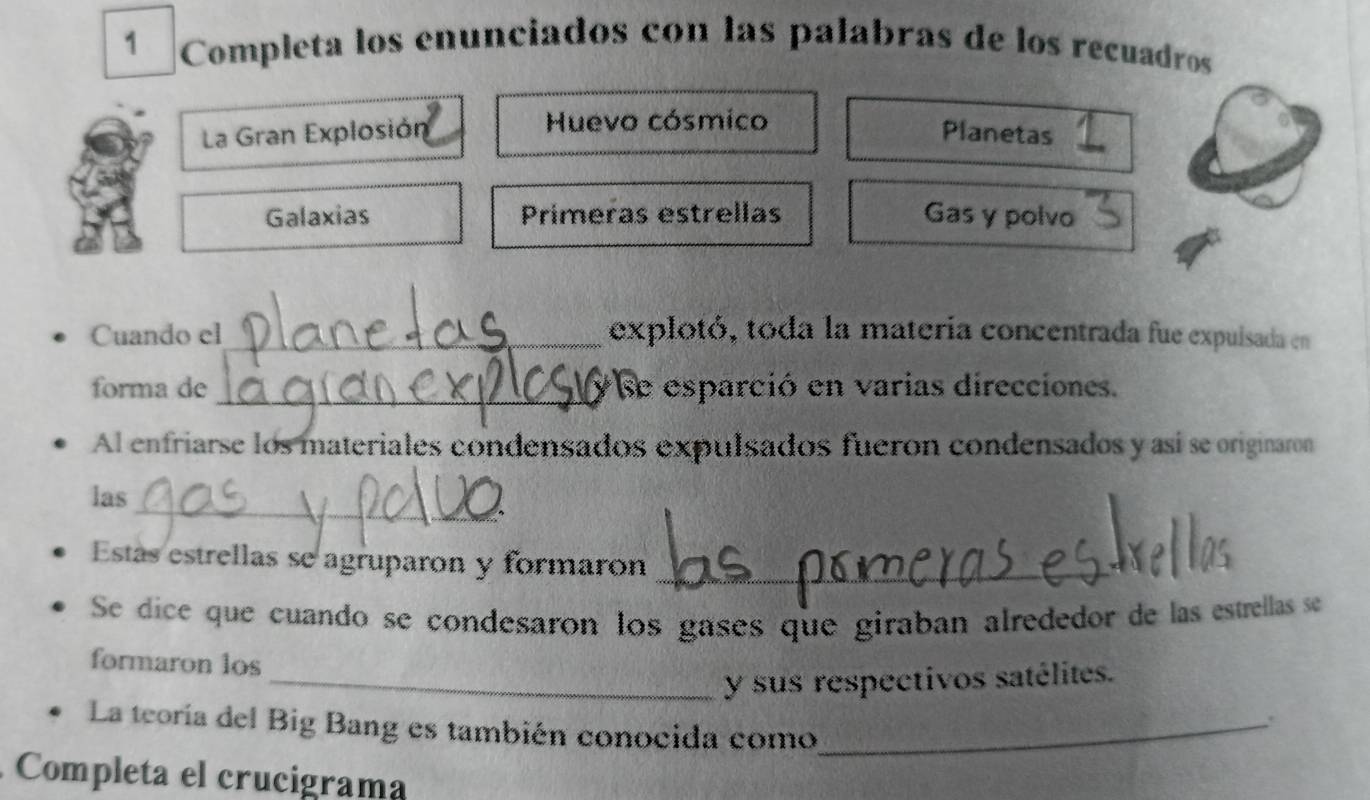 1 Completa los enunciados con las palabras de los recuadros
La Gran Explosión 2 Huevo cósmico Planetas 1
Galaxias Primeras estrellas Gas y polvo 3
• Cuando el planetas explotó, toda la materia concentrada fue expulsada en
forma de la gran explosion y se esparció en varias direcciones.
• Al enfriarse los materiales condensados expulsados fueron condensados y asi se originaron
las gas y polvo.
• Estas estrellas se agruparon y formaron las primeras estrellas
• Se dice que cuando se condesaron los gases que giraban alrededor de las estrellas se
formaron los ____ y sus respectivos satélites.
• La teoría del Big Bang es también conocida como ____.
. Completa el crucigrama